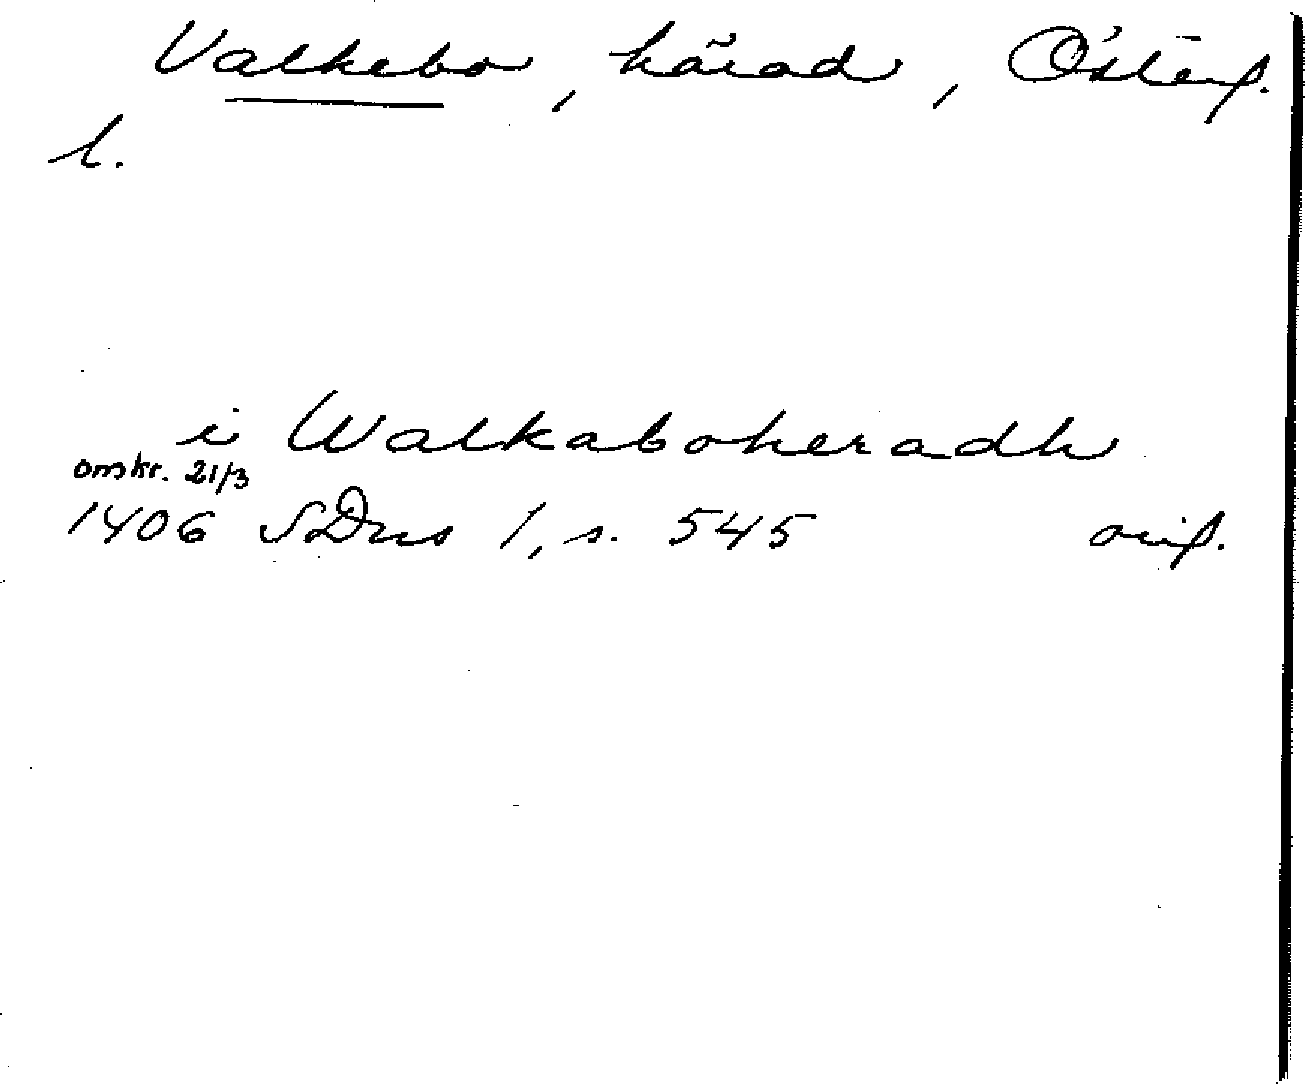 Valkebo, härad, Österg.
l.
i Walkaboheradh
omkr. 21/3
1406 SDns 1, s. 545 orig.